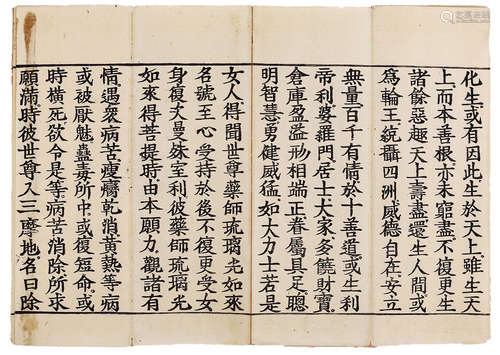 化生或有因此生於天上雖生天
上而本善根亦未窮盡不復更生
諸餘惡趣天上壽盡還生人間或
為輪王統攝四洲威德自在安立
無量百千有情於十善道或生剎
帝利婆羅門居士大家多饒財寶
倉庫盈溢形相端正眷屬具足聰
明智慧勇健威猛如大力士若是
女人得聞世尊藥師琉璃光如來
名號至心受持於後不復更受女
身復次曼殊室利彼藥師琉璃光
如來得菩提時由本願力觀諸有
情遇眾病苦瘦𤼣乾消黃熱等病
或被厭魅蠱毒所中或復短命或
時橫死欲令是等病苦消除所求
願滿時彼世尊入三摩地名曰除